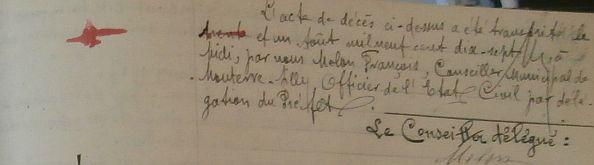 L'acte de décès ci-dessus a été transcrit le
trente et un Août mil neuf cent dix-sept, à
midi, par nous Molon François, Conseiller Municipal de
Mouterre-Silly Officier de l'Etat Civil par délé-
gation du Préfet.
Le Conseiller délégué :